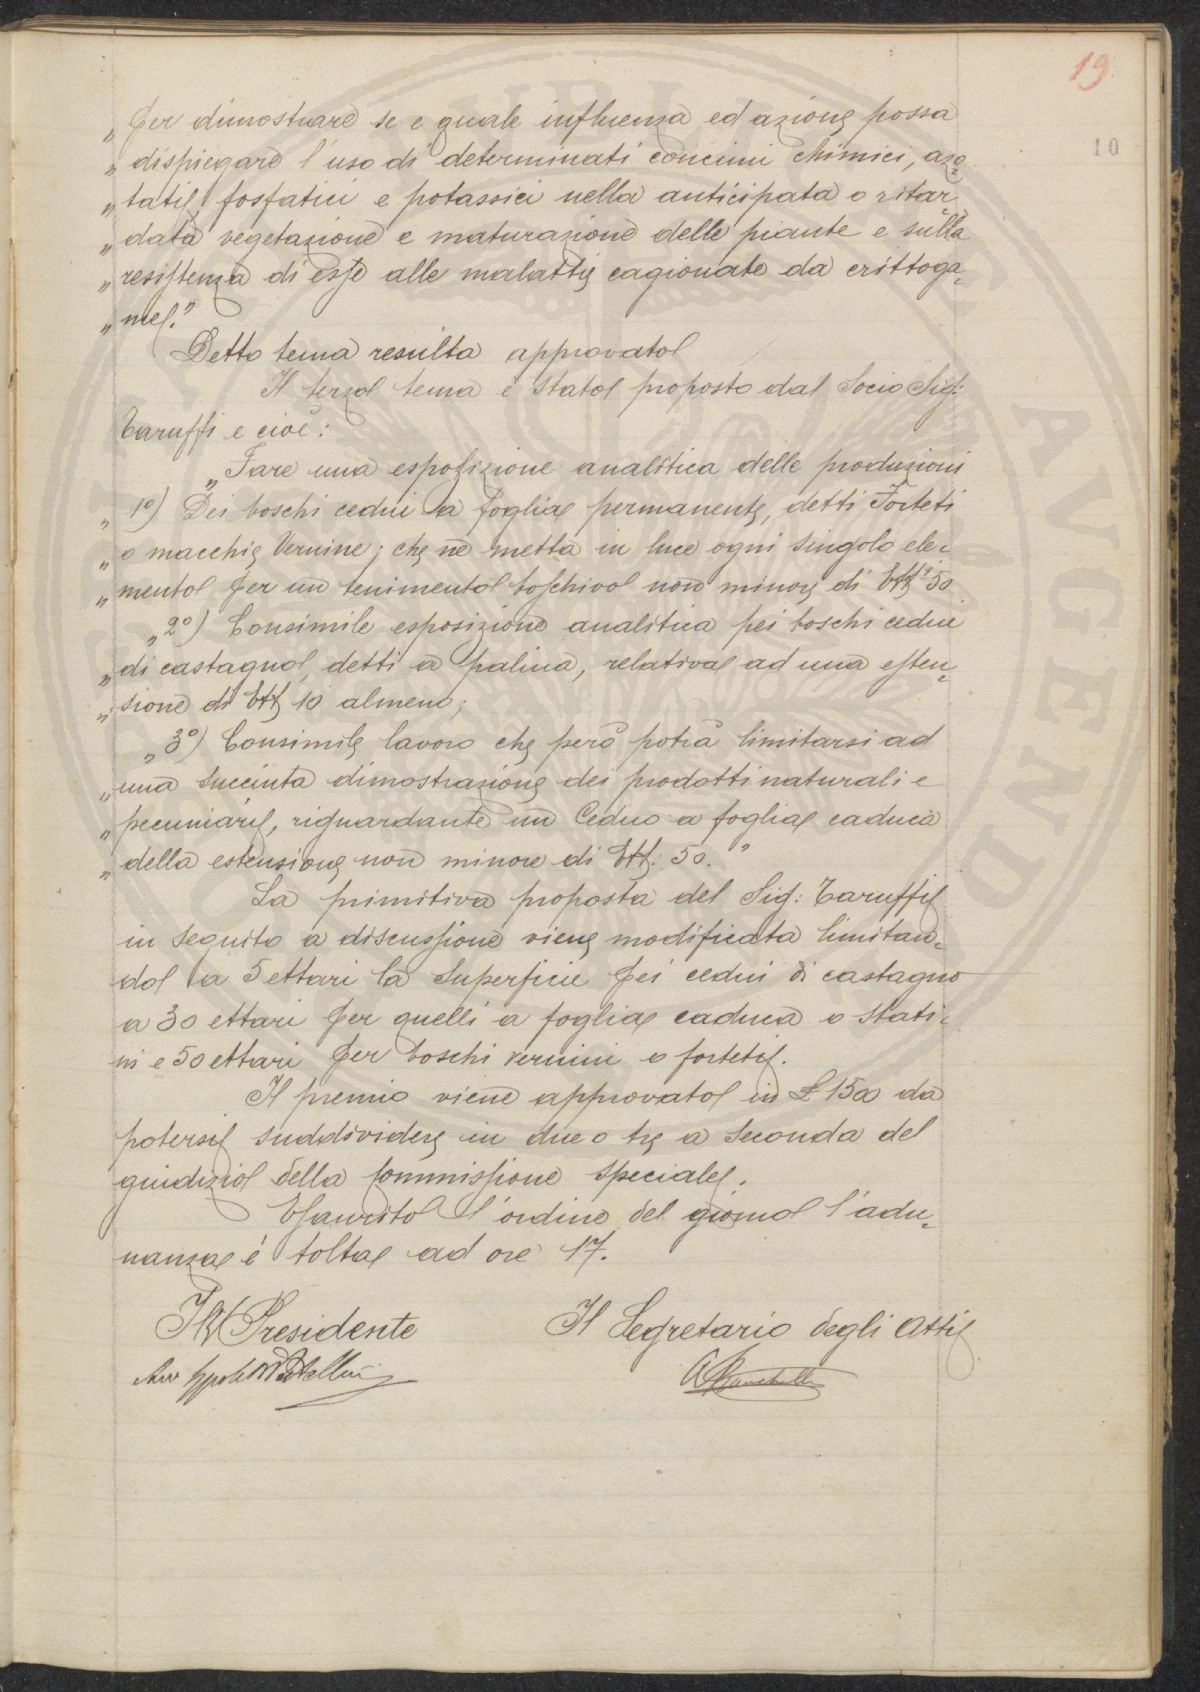 19
10
„ per dimostrare se e quale influenza ed azione possa
„ dispiegare l'uso di determinati concimi chimici, azo-
„ tati, fosfatici e potassici nella anticipata o ritar
„ data vegetazione e maturazione delle piante e sulla
„ resistenza di esse alle malattie cagionate da crittoga-
„ me."
Detto tema resulta approvato
Il terzo tema è stato proposto dal Socio Sig:
Taruffi e cioè:
„ Fare una esposizione analitica delle produzioni
„ 1o) Dei boschi cedui a foglia permanente, detti Forteti
„ o macchie Vernine; che ne metta in luce ogni singolo ele-
„ mento per un tenimento boschivo non minore di Ett.i 50
„ 2o) Consimile esposizione analitica pei boschi cedui
„ di castagno, detti a palina, relativa ad una esten-
„ sione di Ett 10 almeno;
„ 3o) Consimile lavoro che però potrà limitarsi ad
„ una succinta dimostrazione dei prodotti naturali e
„ pecuniari, riguardante un Ceduo a foglia caduca
„ della estensione non minore di Ett: 50."
La primitiva proposta del Sig: Taruffi
in seguito a discussione viene modificata limitan-
do a 5 ettari la superficie pei cedui di castagno
a 30 ettari per quelli a foglia caduca o stati-
ni e 50 ettari per boschi vernini o forteti.
Il premio viene approvato in £ 1500 da
potersi suddividere in due o tre a seconda del
giudizio della Commissione speciale.
Esaurito l'ordine del giorno l'adu-
nanza è tolta ad ore 17.
Il Presidente
Il Segretario degli Atti